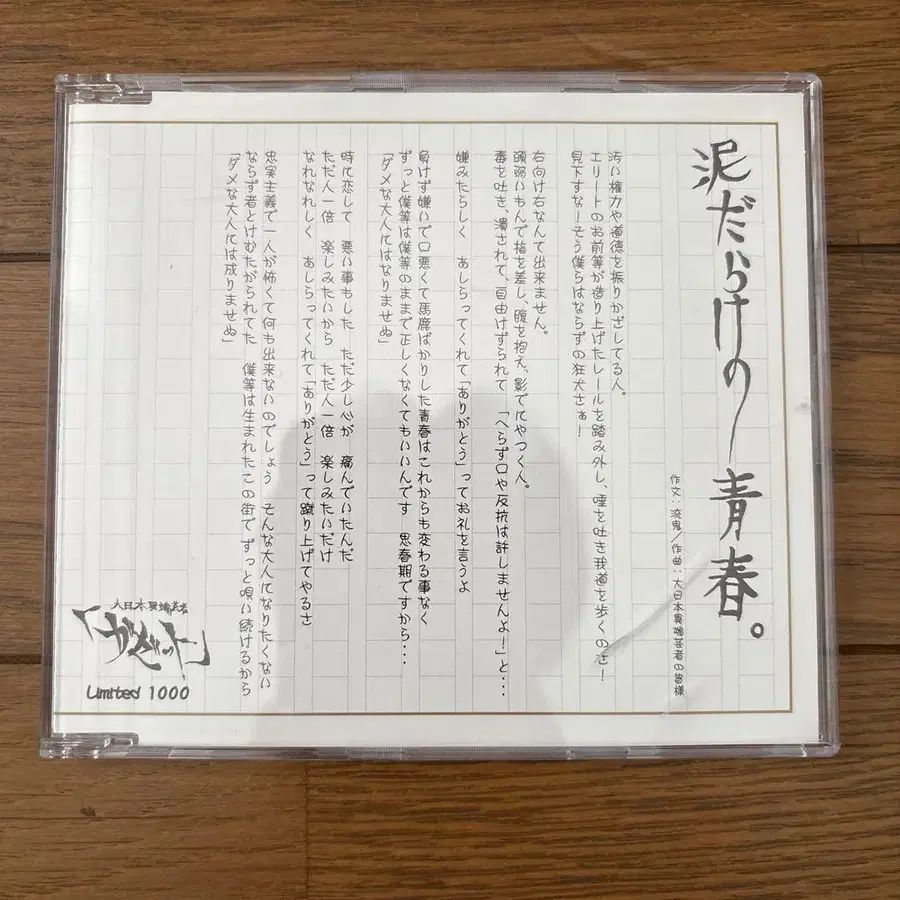 泥だらけの青春。
作文：流鬼／作曲：大日本異端芸者の皆様
汚い権力や道徳を振りかざしてる人。
エリートのお前等が造り上げたレールを踏み外し、唾を吐き我道を歩くのさ！
見下すな！そう僕らはならずの狂犬さぁ！
右向け右なんて出来ません。
頭弱いもんで指を差し、腹を抱え、影でにやつく人。
毒を吐き、潰されて、自由けずられて 「へらず口や反抗は許しませんよ！」と・・・
嫌みたらしく あしらってくれて「ありがとう」ってお礼を言うよ
負けず嫌いで口悪くて馬鹿ばかりした青春はこれからも変わる事なく
ずっと僕等は僕等のままで正しくなくてもいいんです 思春期ですから・・・
「ダメな大人にはなりませぬ」
時に恋して 悪い事もした ただ少し心が 痛んでいたんだ
ただ人一倍 楽しみたいから ただ人一倍 楽しみたいだけ
なれなれしく あしらってくれて「ありがとう」って蹴り上げてやるさ
忠実主義で一人が怖くて何も出来ないのでしょう そんな大人になりたくない
ならず者とけむたがられてた 僕等は生まれたこの街でずっと唄い続けるから
「ダメな大人には成りませぬ」
大日本異端芸者
「ガゼット」
Limited 1000